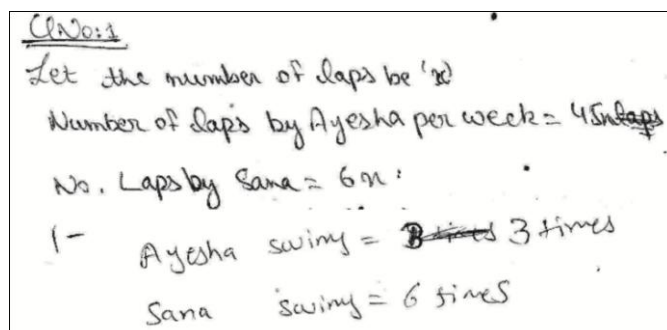 QNo:1
Let the number of laps be 'x'
Number of laps by Ayesha per week = 45x
No. Laps by Sana = 6x:
1- Ayesha swims = 3 times
Sana swims = 6 times